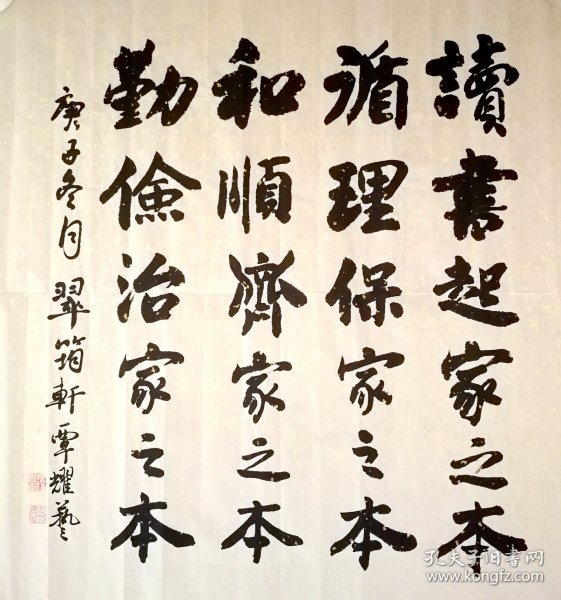 讀書起家之本
循理保家之本
和順齊家之本
勤儉治家之本
庚子冬月 翠筠軒 覃耀藝
孔夫子旧书网
www.kongfz.com